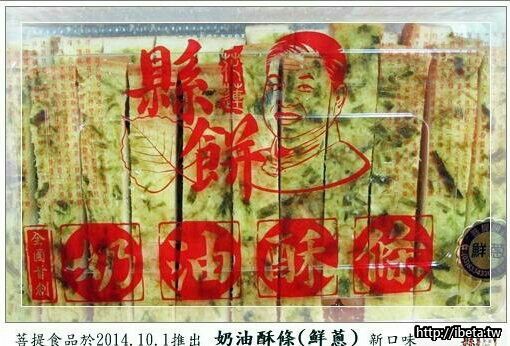 花蓮
縣餅
全國首創
奶油酥條
鮮蔥
菩提食品於2014.10.1推出 奶油酥條(鮮蔥) 新口味
http://ibeta.tw